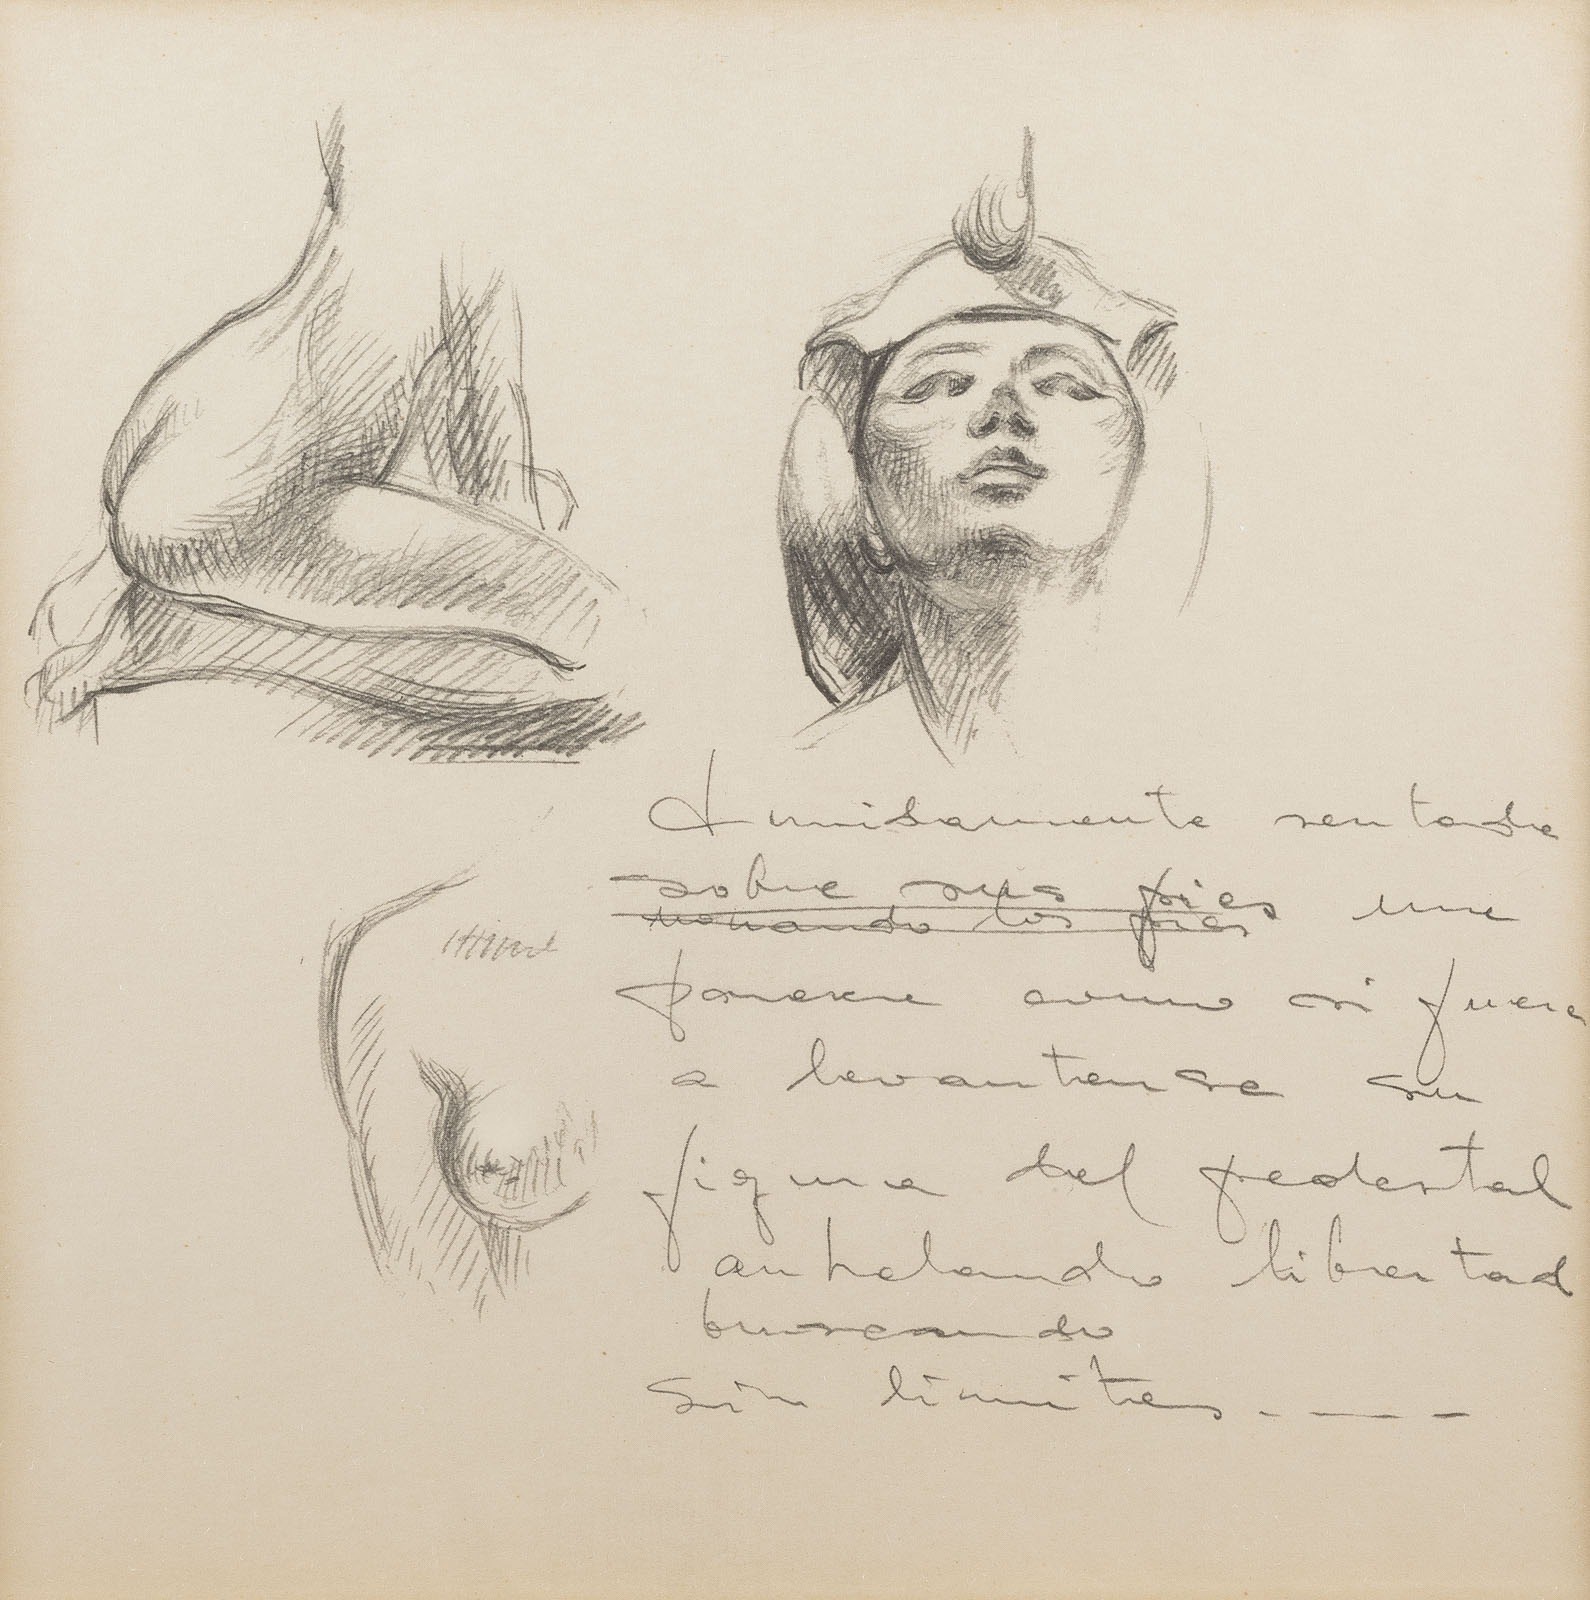 sumisamente sentada
sobre sus pies me
rozando los pies
parece como si fuera
a levantarse su
figura del pedestal
anhelando libertad
buscando
sin limites----